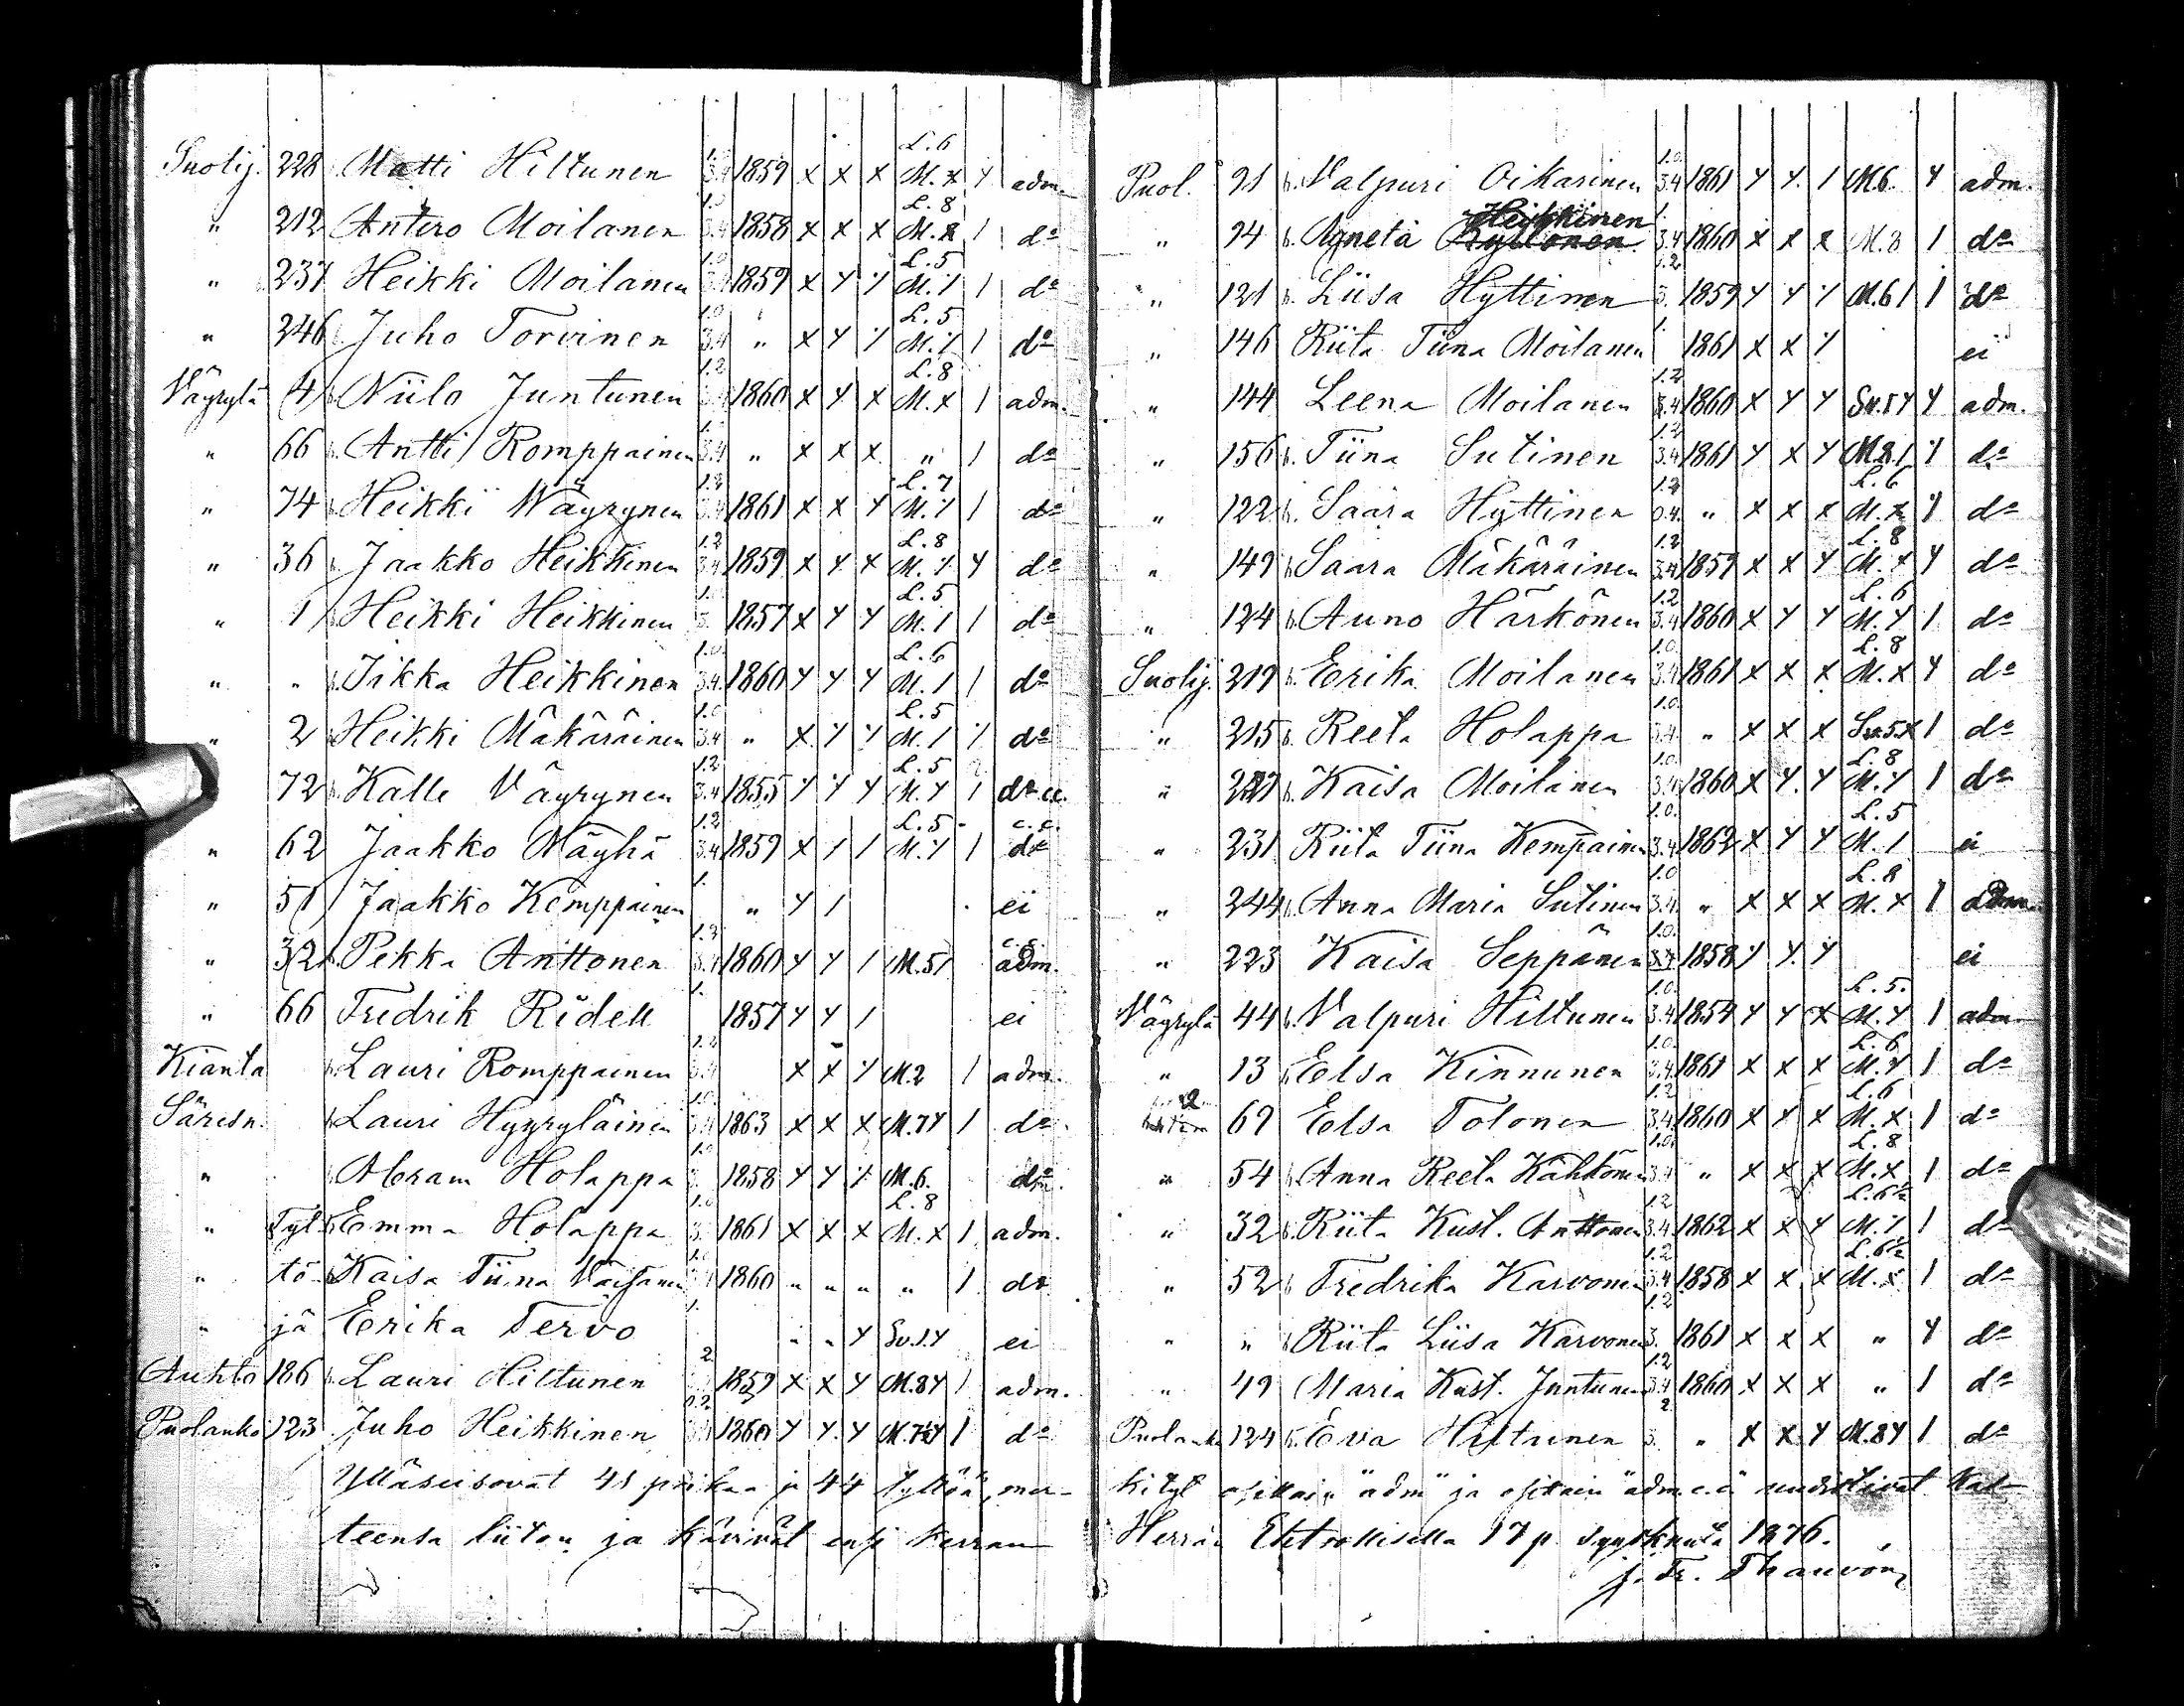 Suolij. 228 Matti Hiltunen 1859 x x x L.6 M.x y adm.
" 212 Antero Moilanen 1858 x x x L.8 M.x 1 do
" 237 Heikki Moilanen 1859 x y y L.5 M.1 1 do
" 246 Juho Torvinen 3.4 " x y y L.5 M.y 1 do
Väyrylä 4 Niilo Juntunen 1860 x y x L.8 M.x 1 adm.
" 66 Antti Romppainen 3.4 " x x x " 1 do
" 74 Heikki Wäyrynen 1861 x x y L.7 M.y 1 do
" 36 Jaakko Heikkinen 3.4 1859 x y x L.8 M.y y do
" 1 Heikki Heikkinen 3. 1857 x y y L.5 M.1 1 do
" " Iikka Heikkinen 3.4. 1860 y y y L.6 M.1 1 do
" 2 Heikki Mäkäräinen 3.4 " x y y L.5 M.1 y do
72 Kalle Väyrynen 3.4 1855 y y y L.5 M.y 1 do cc.
" 62 Jaakko Näyhä 3.4 1859 x y 1 L.5 M.y 1 c.c. do
" 51 Jaakko Kemppainen 1. " y 1 ei
" 32 Pekka Anttonen 1860 y y 1 M.51 c.c. adm.
" 66 Fredrik Ridell 1. 1857 y y 1 ei
Kianta Lauri Romppainen x x y M.2 1 adm.
Säresn. Lauri Hyyryläinen 1863 x x x M.7y 1 do
" Abram Holappa 3. 1858 y y y M.6. do
" Tyt Emma Holappa 3. 1861 x x x L.8 M.x 1 adm.
" tö Kaisa Tiina Väisänen 1860 " " " " 1 do
" jä Erika Tervo 1. " " y Sv.1.y ei
Auhto 186 Lauri Hiltunen 1859 x x y M.8y 1 adm.
Puolanko 123 Juho Heikkinen 1860 y y y 1 do
Ylläseisovat 41 poikaa ja 44 tyttöä, mer-
teensa liiton ja kävivät ensi kerran
Puol. 91 Valpuri Oikarinen 3.4 1861 y y. 1 M.6. y adm.
" 94 Agneta Heikkinen 3.4 1860 x x x M.8 1 do
" 121 Liisa Hyttinen 3. 1859 y y y M.61 1 do
" 146 Riita Tiina Moilanen 1861 x x y ei
" 144 Leena Moilanen 3.4 1860 x y y y adm.
" 156 Tiina Sutinen 3.4 1861 y x y M.8.1 y do
" 122 Saara Hyttinen " x x x L.6 M.x y do
" 149 Saara Mäkäräinen 3.4 1859 x x y L.8 M.y y do
" 124 Auno Härkönen 3.4 1860 x y y L.6 M.y 1 do
Suolij. 219 Erika Moilanen 3.4 1861 x x x L.8 M.x y do
" 215 Reeta Holappa 3.4. " x x x Sv.5x 1 do
" Kaisa Moilanen 3.4 1860 x y. y L.8 M.y 1 do
" 231 Riita Tiina Kempainen 3.4 1862 x y y L.5 M.1 ei
" 244 Anna Maria Sutinen 3.4. " x x x L.8 M.x 1 adm.
" 223 Kaisa Seppänen 1858 y y. y ei
Väyrylä 44 Valpuri Hiltunen 3.4 1854 y y x L.5. M.y 1 adm.
" 13 Elsa Kinnunen 3.4 1861 x x x L.6 M.y 1 do
69 Elsa Tolonen 3.4 1860 x x x L.6 M.x 1 do
" 54 Anna Reeta Kähkönen 3.4 " x x x L.8 M.x 1 do
" 32 Riita Kust. Anttonen 3.4 1862 x x y L.6½ M.y 1 do
" 52 Fredrika Karvonen 3.4 1858 x x x L.6½ M.x 1 do
" " Riita Liisa Karvonen 3. 1861 x x x " y do
" 49 Maria Kust. Juntunen 3.4 1860 x x x " 1 do
Puolanko 124 Eva Hiltunen 3. " x x y M.8y 1 do
kityt osittain "adm" ja ositain "adm. c.c" uudistivat Kas-
Herran Ehtoollisella 17 p. syyskuuta 1876.
J. Fr. Thauvón